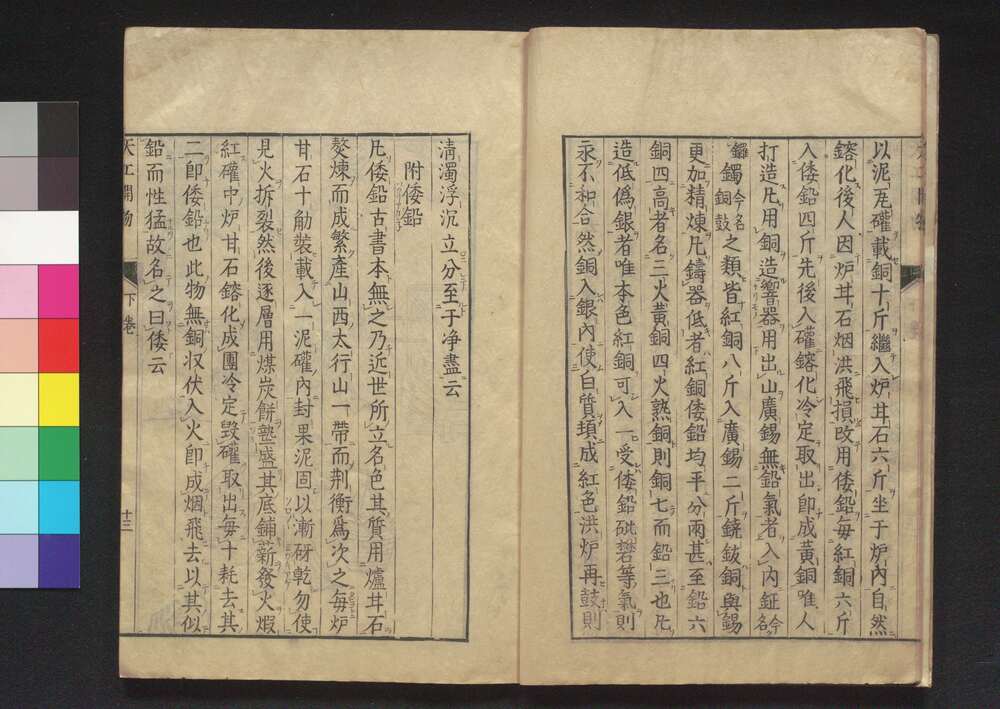 以泥瓦罐載銅十斤繼入炉甘石六斤坐于炉內自然
鎔化後人因炉甘石烟洪飛損攺用倭鉛每紅銅六斤
入倭鉛四斤先後入罐鎔化冷定取出卽成黃銅唯人
打造凡用銅造響器用出山廣錫無鉛氣者入內鉦今名
鑼鐲今名銅鼓之類皆紅銅八斤入廣錫二斤鐃鈸銅與錫
更加精煉凡鑄器低者紅銅倭鉛均平分兩甚至鉛六
銅四高者名三火黃銅四火熟銅則銅七而鉛三也凡
造低僞銀者唯本色紅銅可入一受倭鉛砒礬等氣則
永不和合然銅入銀內使白質頃成紅色洪炉再鼓則
清濁浮沉立分至于净盡云
附倭鉛
凡倭鉛古書本無之乃近世所立名色其質用爐甘石
熬煉而成繁產山西太行山一帶而荆衡爲次之每炉
甘石十觔裝載入一泥罐內封果泥固以漸砑乾勿使
見火拆裂然後逐層用煤炭餅墊盛其底鋪薪發火煆
紅罐中炉甘石鎔化成團冷定毀罐取出每十耗去其
二卽倭鉛也此物無銅収伏入火卽成烟飛去以其似
鉛而性猛故名之曰倭云
天工開物
下卷
十三